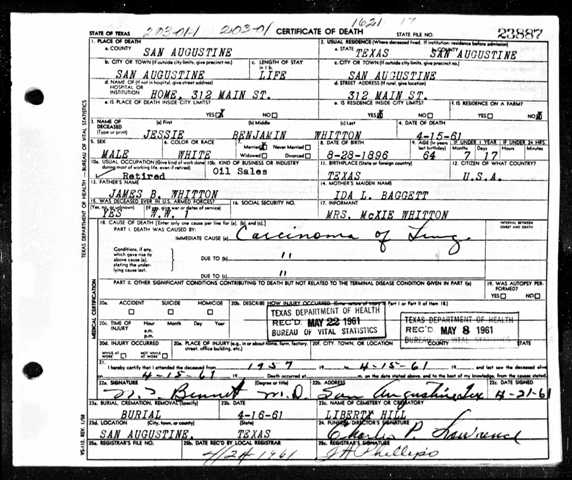 1621 17
STATE OF TEXAS 203-01 203-01 CERTIFICATE OF DEATH STATE FILE NO. 23887
1. PLACE OF DEATH 2. USUAL RESIDENCE (Where deceased lived. If institution: residence before admission)
a. COUNTY SAN AUGUSTINE a. STATE TEXAS SAN AUGUSTINE
b. CITY OR TOWN (If outside city limits, give precinct no.) c. LENGTH OF STAY c. CITY OR TOWN (If outside city limits, give precinct no.)
SAN AUGUSTINE LIFE SAN AUGUSTINE
d. NAME OF (If not in hospital, give street address)
HOSPITAL OR INSTITUTION HOME, 312 MAIN ST. 312 MAIN ST.
e. IS PLACE OF DEATH INSIDE CITY LIMITS? e. IS RESIDENCE INSIDE CITY LIMITS? f. IS RESIDENCE ON A FARM?
YES NO YES NO YES NO
3. NAME OF DECEASED (Type or print) (a) First (b) Middle (c) Last 4. DATE OF DEATH
JESSIE BENJAMIN WHITTON 4-15-61
5. SEX 6. COLOR OR RACE 7. Married Never Married Widowed Divorced 8. DATE OF BIRTH 9. AGE (In years last birthday) IF UNDER 1 YEAR IF UNDER 24 HRS.
MALE WHITE 8-28-1896 64 7 17
10a. USUAL OCCUPATION 10b. KIND OF BUSINESS OR INDUSTRY 11. BIRTHPLACE (State or foreign country) 12. CITIZEN OF WHAT COUNTRY?
Retired Oil Sales TEXAS U.S.A.
13. FATHER'S NAME 14. MOTHER'S MAIDEN NAME
JAMES B. WHITTON IDA L. BAGGETT
15. WAS DECEASED EVER IN U.S. ARMED FORCES? 16. SOCIAL SECURITY NO. 17. INFORMANT
YES W.W. I MRS. McXIE WHITTON
18. CAUSE OF DEATH [Enter only one cause per line for (a), (b), and (c).] INTERVAL BETWEEN ONSET AND DEATH
PART I. DEATH WAS CAUSED BY:
IMMEDIATE CAUSE (a) Carcinoma of Lung
Conditions, if any, which gave rise to above cause (a), stating the underlying cause last. DUE TO (b) "
DUE TO (c) "
PART II. OTHER SIGNIFICANT CONDITIONS CONTRIBUTING TO DEATH BUT NOT RELATED TO THE TERMINAL DISEASE CONDITION GIVEN IN PART I(a) 19. WAS AUTOPSY PERFORMED?
YES NO
20a. ACCIDENT SUICIDE HOMICIDE 20b. DESCRIBE HOW INJURY OCCURRED
TEXAS DEPARTMENT OF HEALTH
REC'D MAY 22 1961
BUREAU OF VITAL STATISTICS
TEXAS DEPARTMENT OF HEALTH
REC'D MAY 8 1961
BUREAU OF VITAL STATISTICS
20c. TIME OF INJURY Hour Month Day Year
20d. INJURY OCCURRED 20e. PLACE OF INJURY 20f. CITY, TOWN, OR LOCATION COUNTY STATE
21. I hereby certify that I attended the deceased from 1957 to 4-15-61 and last saw the deceased alive
4-15-61 Death occurred
22a. SIGNATURE (Degree or title) 22b. ADDRESS 22c. DATE SIGNED
Bennet M.D. San Augustine Tex 4-21-61
23a. BURIAL, CREMATION, REMOVAL (Specify) 23b. DATE 23c. NAME OF CEMETERY OR CREMATORY
BURIAL 4-16-61 LIBERTY HILL
23d. LOCATION (City, town, or county) (State) 24. FUNERAL DIRECTOR'S SIGNATURE
SAN AUGUSTINE, TEXAS Charles P. Lawrence
25a. REGISTRAR'S FILE NO. 25b. DATE REC'D BY LOCAL REGISTRAR 25c. REGISTRAR'S SIGNATURE
4/24 1961 Phillips
TEXAS DEPARTMENT OF HEALTH—BUREAU OF VITAL STATISTICS
MEDICAL CERTIFICATION